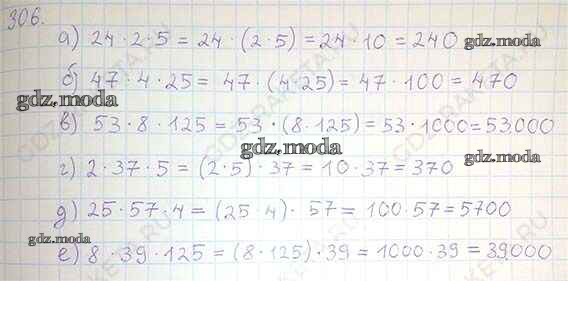 306.
а) 24 · 2 · 5 = 24 · (2 · 5) = 24 · 10 = 240 gdz.moda
б) 47 · 4 · 25 = 47 · (4 · 25) = 47 · 100 = 470
gdz.moda
в) 53 · 8 · 125 = 53 · (8 · 125) = 53 · 1000 = 53.000
gdz.moda
г) 2 · 37 · 5 = (2 · 5) · 37 = 10 · 37 = 370 gdz.moda
д) 25 · 57 · 4 = (25 · 4) · 57 = 100 · 57 = 5700
gdz.moda
е) 8 · 39 · 125 = (8 · 125) · 39 = 1000 · 39 = 39.000 gdz.moda